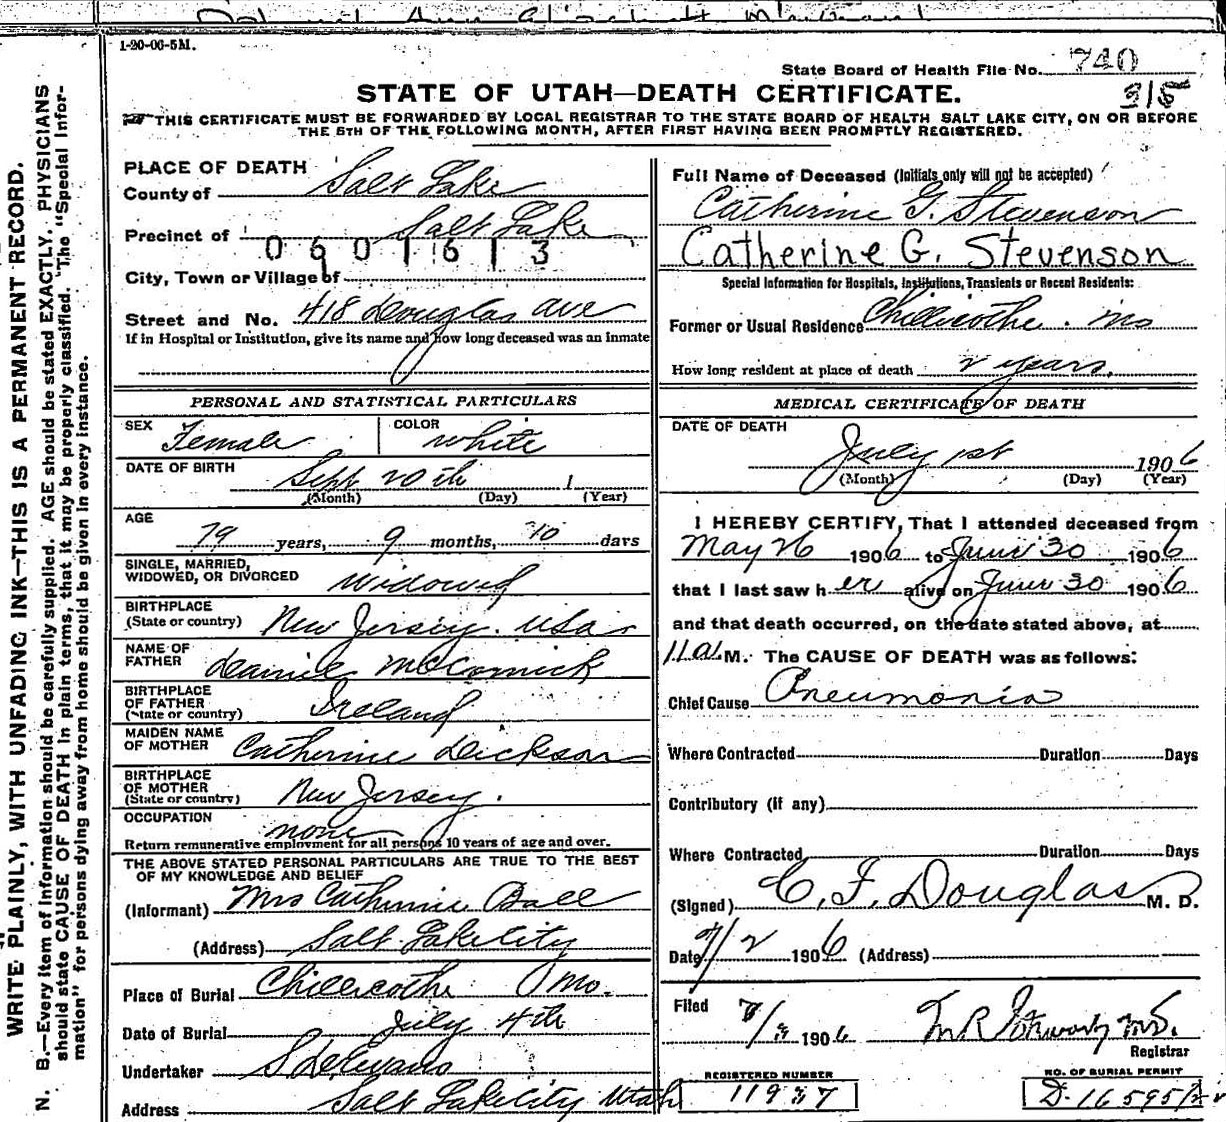 1-20-06-5M.
State Board of Health File No. 740
STATE OF UTAH—DEATH CERTIFICATE.
315
THIS CERTIFICATE MUST BE FORWARDED BY LOCAL REGISTRAR TO THE STATE BOARD OF HEALTH SALT LAKE CITY, ON OR BEFORE
THE 5TH OF THE FOLLOWING MONTH, AFTER FIRST HAVING BEEN PROMPTLY REGISTERED.
WRITE PLAINLY, WITH UNFADING INK—THIS IS A PERMANENT RECORD.
N. B.—Every item of information should be carefully supplied. AGE should be stated EXACTLY. PHYSICIANS
should state CAUSE OF DEATH in plain terms, that it may be properly classified. The "Special Infor-
mation" for persons dying away from home should be given in every instance.
PLACE OF DEATH
County of Salt Lake
Precinct of Salt Lake
0601613
City, Town or Village of
Street and No. 418 Douglas Ave
If in Hospital or Institution, give its name and how long deceased was an inmate
PERSONAL AND STATISTICAL PARTICULARS
SEX Female COLOR White
DATE OF BIRTH Sept 20th 1
(Month) (Day) (Year)
AGE
79 years, 9 months, 10 days
SINGLE, MARRIED,
WIDOWED, OR DIVORCED Widowed
BIRTHPLACE
(State or country) New Jersey. USA
NAME OF
FATHER Dannie McCormick
BIRTHPLACE
OF FATHER
(State or country) Ireland
MAIDEN NAME
OF MOTHER Catherine Dickson
BIRTHPLACE
OF MOTHER
(State or country) New Jersey.
OCCUPATION
none
Return remunerative employment for all persons 10 years of age and over.
THE ABOVE STATED PERSONAL PARTICULARS ARE TRUE TO THE BEST
OF MY KNOWLEDGE AND BELIEF
(Informant) Mrs Catherine Ball
(Address) Salt Lake City
Place of Burial Chillicothe Mo.
Date of Burial July 4th
Undertaker S D Evans
Address Salt Lake City Utah
Full Name of Deceased (Initials only will not be accepted)
Catherine G. Stevenson
Catherine G. Stevenson
Special Information for Hospitals, Institutions, Transients or Recent Residents:
Former or Usual Residence Chillicothe. Mo
How long resident at place of death 2 years.
MEDICAL CERTIFICATE OF DEATH
DATE OF DEATH
July 1st 1906
(Month) (Day) (Year)
I HEREBY CERTIFY, That I attended deceased from
May 26 1906 to June 30 1906
that I last saw her alive on June 30 1906
and that death occurred, on the date stated above, at
11 a M. The CAUSE OF DEATH was as follows:
Chief Cause Pneumonia
Where Contracted Duration Days
Contributory (if any)
Where Contracted Duration Days
(Signed) C. F. Douglas M. D.
Date 7/2 1906 (Address)
Filed 7/3 1906 M.D.
Registrar
REGISTERED NUMBER
11937
NO. OF BURIAL PERMIT
D. 16595